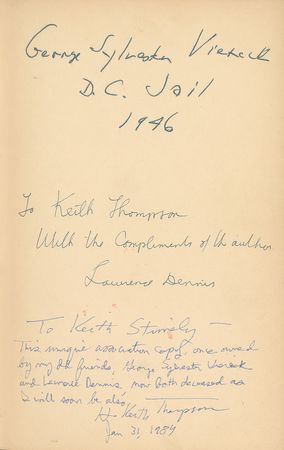 George Sylvester Viereck
D.C. Jail
1946
To Keith Thompson
With the Compliments of the author
Lawrence Dennis
To Keith Stimely —
This unique association copy, once owned
by my old friends, George Sylvester Viereck
and Lawrence Dennis, now both deceased as
I will soon be also.
H. Keith Thompson
Jan 31, 1984